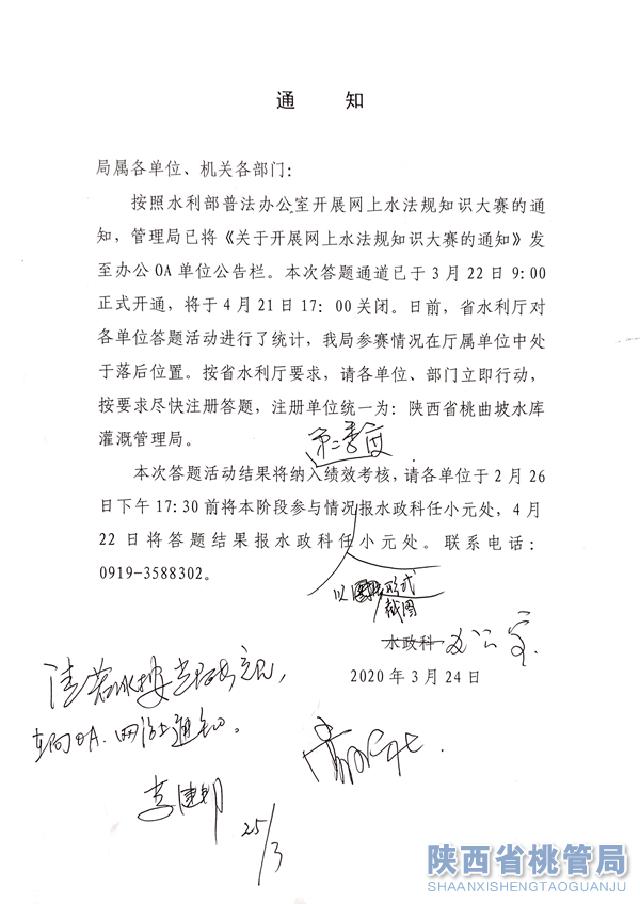 通 知
局属各单位、机关各部门：
按照水利部普法办公室开展网上水法规知识大赛的通
知，管理局已将《关于开展网上水法规知识大赛的通知》发
至办公 OA 单位公告栏。本次答题通道已于 3 月 22 日 9:00
正式开通，将于 4 月 21 日 17: 00 关闭。日前，省水利厅对
各单位答题活动进行了统计，我局参赛情况在厅属单位中处
于落后位置。按省水利厅要求，请各单位、部门立即行动，
按要求尽快注册答题，注册单位统一为：陕西省桃曲坡水库
灌溉管理局。
第二季度
本次答题活动结果将纳入绩效考核，请各单位于 2 月 26
日下午 17:30 前将本阶段参与情况报水政科任小元处，4 月
22 日将答题结果报水政科任小元处。联系电话：
0919-3588302。
以 形式
截图
水政科 办公室
2020 年 3 月 24 日
25/3
陕西省桃管局
SHAANXISHENGTAOGUANJU